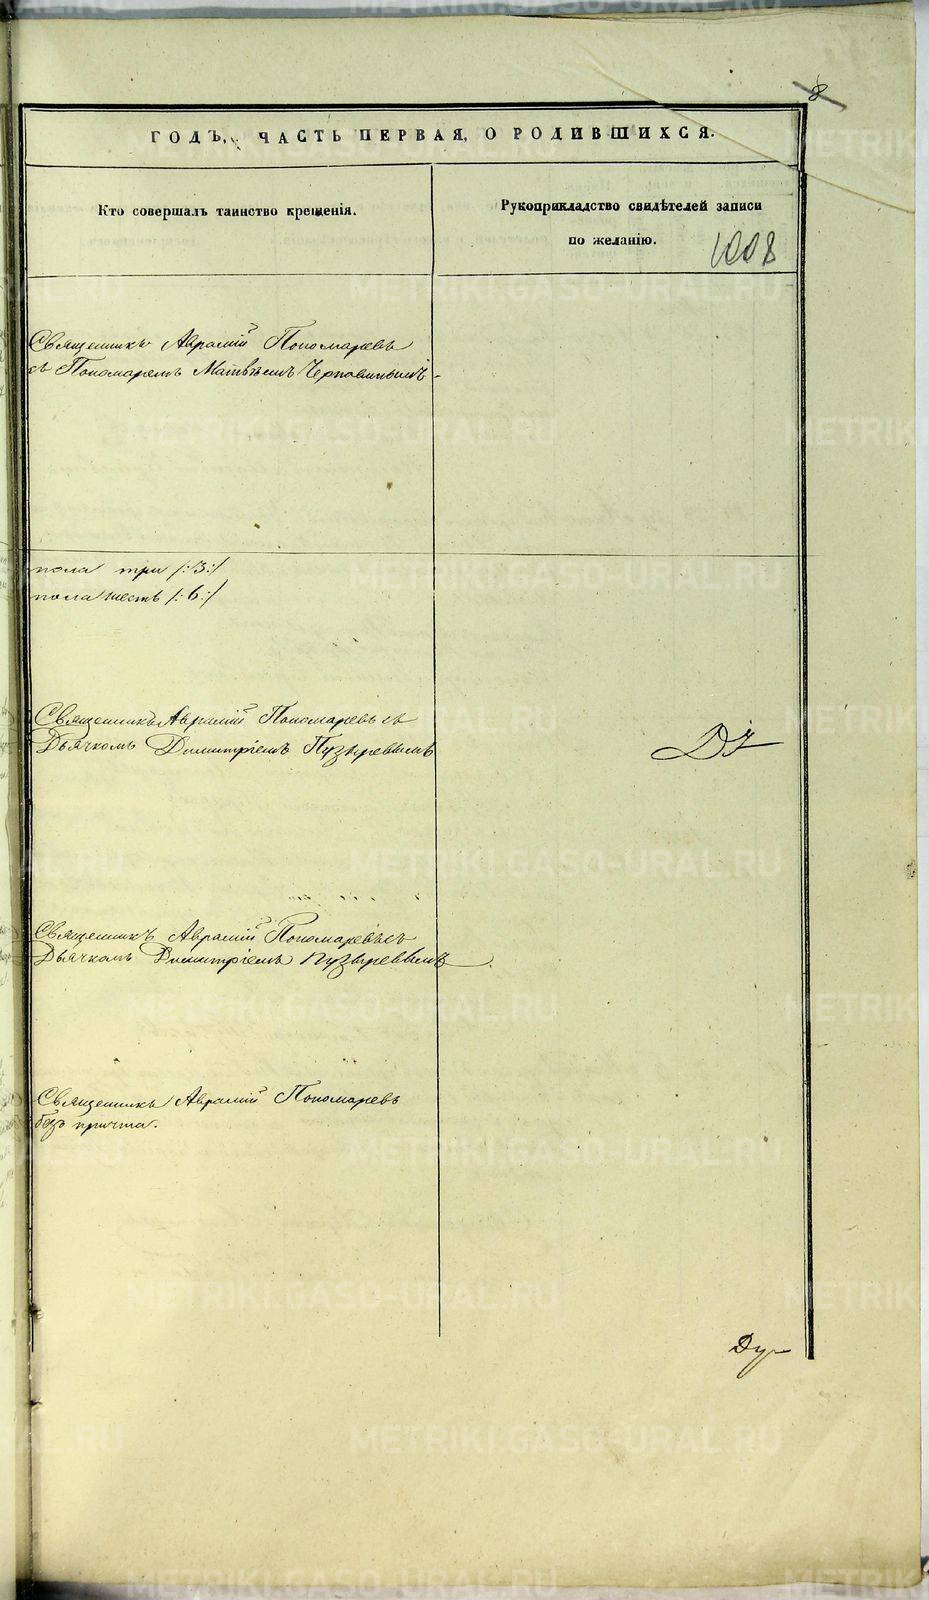 8
ГОДЪ, ЧАСТЬ ПЕРВАЯ, О РОДИВШИХСЯ.
Кто совершалъ таинство крещенія.
Рукоприкладство свидѣтелей записи
по желанію.
1008
Священникъ Аврамій Пономаревъ
съ Пономаремъ Матвѣемъ
пола три /:3:/
пола шесть /:6:/
Священникъ Аврамій Пономаревъ съ
Дьячкомъ Димитріемъ Пузыревымъ
Священникъ Аврамій Пономаревъ съ
Дьячкомъ Димитріемъ Пузыревымъ
Священникъ Аврамій Пономаревъ
безъ причта.
METRIKI.GASO-URAL.RU